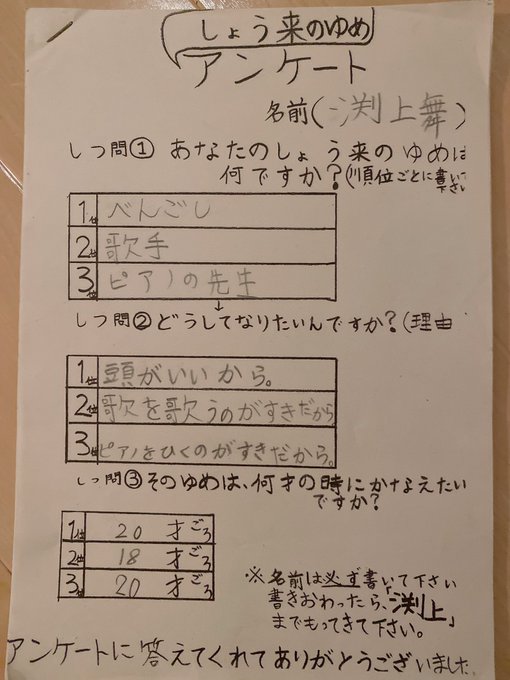 しょう来のゆめ
アンケート
名前(渕上舞)
しつ問① あなたのしょう来のゆめは
何ですか?(順位ごとに書いて下さい
1位 べんごし
2位 歌手
3位 ピアノの先生
↓
しつ問② どうしてなりたいんですか?(理由
1位 頭がいいから。
2位 歌を歌うのがすきだから
3位 ピアノをひくのがすきだから。
しつ問③ そのゆめは、何才の時にかなえたい
ですか?
1位 20 才ごろ
2位 18 才ごろ
3位 20 才ごろ
※名前は必ず書いて下さい
書きおわったら、「渕上」
までもってきて下さい。
アンケートに答えてくれてありがとうございました